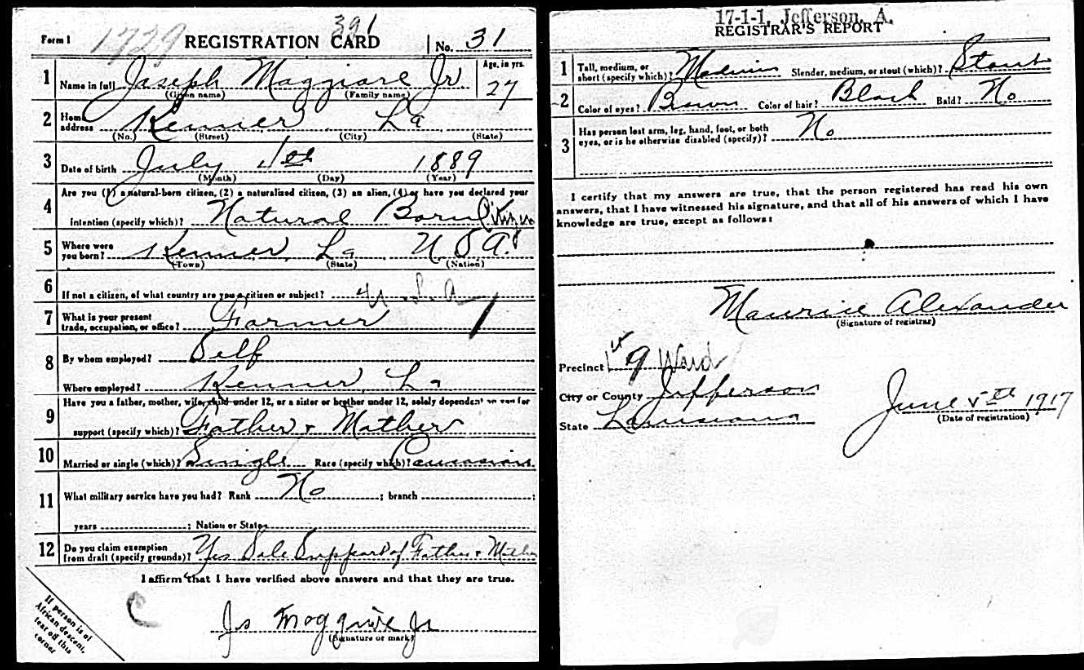 Form 1 1729 391 REGISTRATION CARD No. 31
1 Name in full Joseph Maggiore Jr Age, in yrs. 27
(Given name) (Family name)
2 Home address Kenner La
(No.) (Street) (City) (State)
3 Date of birth July 1st 1889
(Month) (Day) (Year)
4 Are you (1) a natural-born citizen, (2) a naturalized citizen, (3) an alien, (4) or have you declared your
intention (specify which)? Natural Born Citizen
5 Where were you born? Kenner La U.S.A.
(Town) (State) (Nation)
6 If not a citizen, of what country are you a citizen or subject? U.S.A
7 What is your present trade, occupation, or office? Farmer
8 By whom employed? Self
Where employed? Kenner, La
9 Have you a father, mother, wife, child under 12, or a sister or brother under 12, solely dependent on you for
support (specify which)? Father + Mother
10 Married or single (which)? Single Race (specify which)? Caucasian
11 What military service have you had? Rank No ; branch ;
years ; Nation or State
12 Do you claim exemption from draft (specify grounds)? Yes Sole Support of Father + Mother
I affirm that I have verified above answers and that they are true.
C
Jr
(Signature or mark)
If person is of
African descent,
tear off this
corner
17-1-1, Jefferson, A.
REGISTRAR'S REPORT
1 Tall, medium, or short (specify which)? Medium Slender, medium, or stout (which)? Stout
2 Color of eyes? Brown Color of hair? Black Bald? No
3 Has person lost arm, leg, hand, foot, or both
eyes, or is he otherwise disabled (specify)? No
I certify that my answers are true, that the person registered has read his own
answers, that I have witnessed his signature, and that all of his answers of which I have
knowledge are true, except as follows:
Maurice Alexander
(Signature of registrar)
Precinct 1st 9 Ward
City or County Jefferson
State Louisiana
June 5th 1917
(Date of registration)